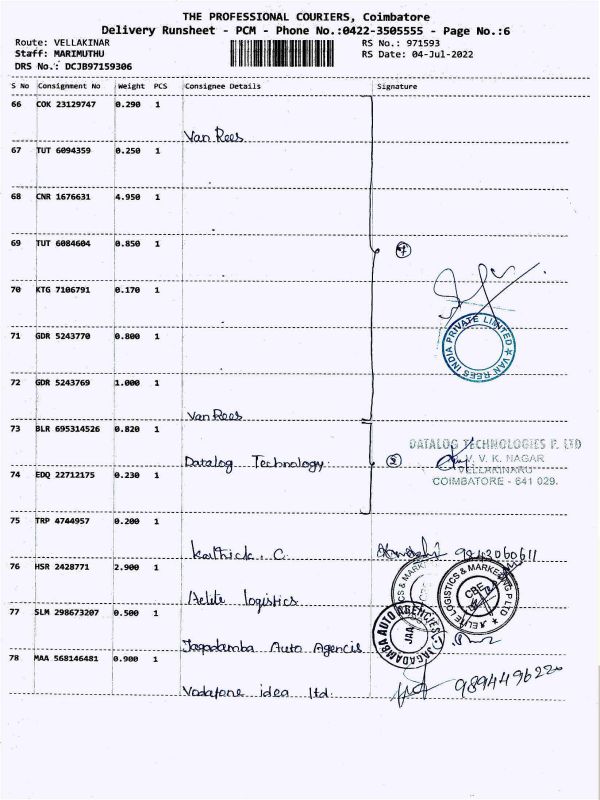 THE PROFESSIONAL COURIERS, Coimbatore
Delivery Runsheet - PCM - Phone No.:0422-3505555 - Page No.:6
Route: VELLAKINAR RS No.: 971593
Staff: MARIMUTHU RS Date: 04-Jul-2022
DRS No.: DCJB97159306
S No Consignment No Weight PCS Consignee Details Signature
66 COK 23129747 0.290 1
Van Rees
67 TUT 6094359 0.250 1
68 CNR 1676631 4.950 1
69 TUT 6084604 0.850 1
7
70 KTG 7106791 0.170 1
71 GDR 5243770 0.800 1
VAN REES INDIA PRIVATE LIMITED
72 GDR 5243769 1.000 1
Van Rees
73 BLR 695314526 0.820 1
DATALOG TECHNOLOGIES P. LTD
Datalog Technology 2 V. V. K. NAGAR
VELLAKINARU
74 EDQ 22712175 0.230 1 COIMBATORE - 641 029.
75 TRP 4744957 0.200 1
Karthick. C 9843060611
76 HSR 2428771 2.900 1
Aelite logistics
AELITE LOGISTICS & MARKETING P LTD
CBE
77 SLM 298673207 0.500 1
JAGADAMBA AUTO AGENCIES
JAA
Jagadamba Auto Agencis
78 MAA 568146481 0.900 1
Vodafone idea ltd. 9894496220